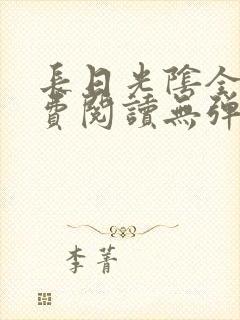 長日光陰全
費閱讀無彈
李菁